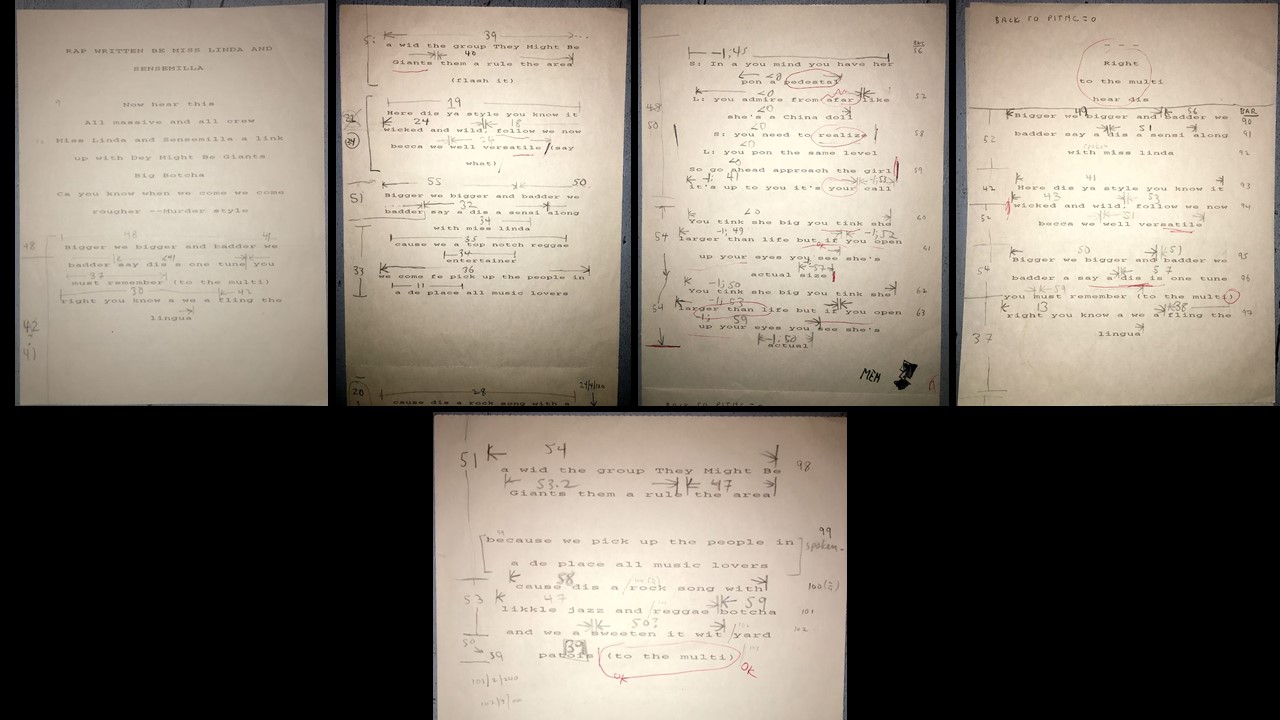 RAP WRITTEN BE MISS LINDA AND
SENSEMILLA
Now hear this
All massive and all crew
Miss Linda and Sensemilla a link
up with Dey Might Be Giants
Big Botcha
Ca you know when we come we come
rougher --Murder style
48
Bigger we bigger and badder we
badder say dis a one tune you
37
must remember (to the multi)
38 42
right you know a we a fling the
lingua
42
41
S: 39
a wid the group They Might Be
40
Giants them a rule the area
(flash it)
19
Here dis ya style you know it
24 18
wicked and wild, follow we now
becca we well versatile (say
what)
55 50
51
Bigger we bigger and badder we
32
badder say a dis a sensi along
34
with miss linda
35
cause we a top notch reggae
34
entertainer
33 36
we come fe pick up the people in
11
a de place all music lovers
20 28
cause dis a rock song with a
-1;45 BAR 56
S: In a you mind you have her
<0
pon a pedestal
L: you admire from afar like
<0
she's a China doll
50 <0 58
S: you need to realize
<0
L: you pon the same level
<0 59
So go ahead approach the girl
41
it's up to you it's your call
<0 60
You tink she big you tink she
54 -1; 49 61
larger than life but if you open
up your eyes you see she's
actual size
-1;50 62
You tink she big you tink she
54 -1;53 63
larger than life but if you open
59
up your eyes you see she's
-1.50
actual
MEN
BACK TO PITHL=0
Right
to the multi
hear dis
49 56 BAR
Bigger we bigger and badder we 90
52 51
badder say a dis a sensi along 91
with miss linda 92
41
42 Here dis ya style you know it 93
43 53
52 wicked and wild, follow we now 94
51
becca we well versatile
50 (51)
Bigger we bigger and badder we 95
54 57
badder a say a dis a one tune 96
59
you must remember (to the multi)
13 38
right you know a we a fling the 97
37 lingua
51 54
a wid the group They Might Be 98
53.2 47
Giants them a rule the area
99
because we pick up the people in spoken.
a de place all music lovers
58
cause dis a rock song with
53 47 59
likkle jazz and reggae botcha 101
50?
and we a sweeten it wit yard 102
39 39
patois (to the multi)
OK OK